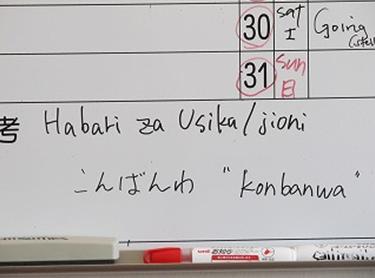 30 sat 土 Going
31 sun 日
考 Habari za Usika/jioni
こんばんわ "Konbanwa"
uni